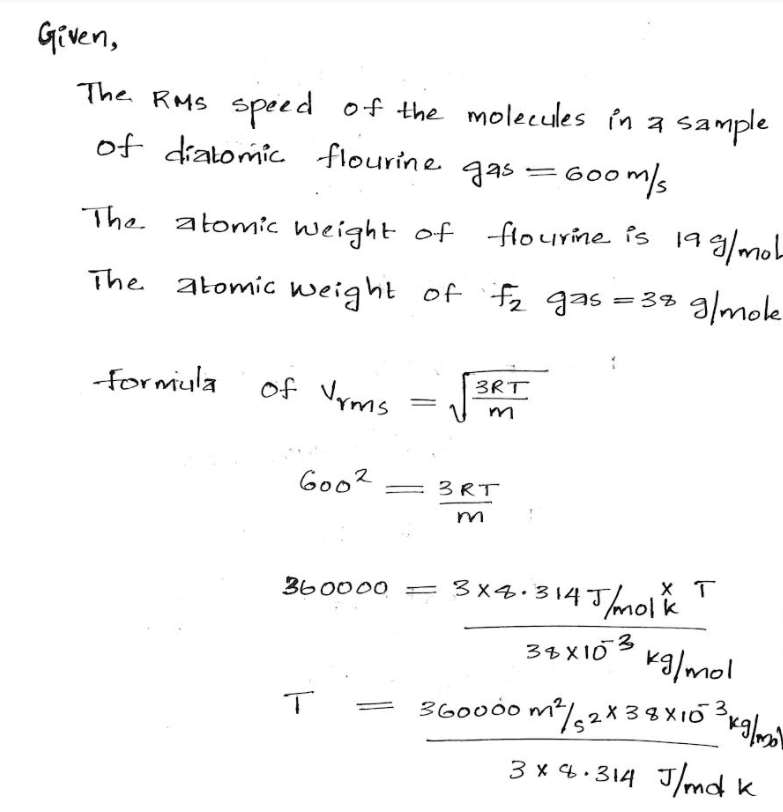 Given,
The RMS speed of the molecules in a sample
of diatomic flourine gas = 600 m/s
The atomic weight of flourine is 19 g/mol
The atomic weight of f₂ gas = 38 g/mole
formula of Vrms = √(3RT/m)
600² = 3RT/m
360000 = 3×8.314 J/mol k × T
38×10⁻³ kg/mol
T = 360000 m²/s² × 38×10⁻³ kg/mol
3 × 8.314 J/mol k